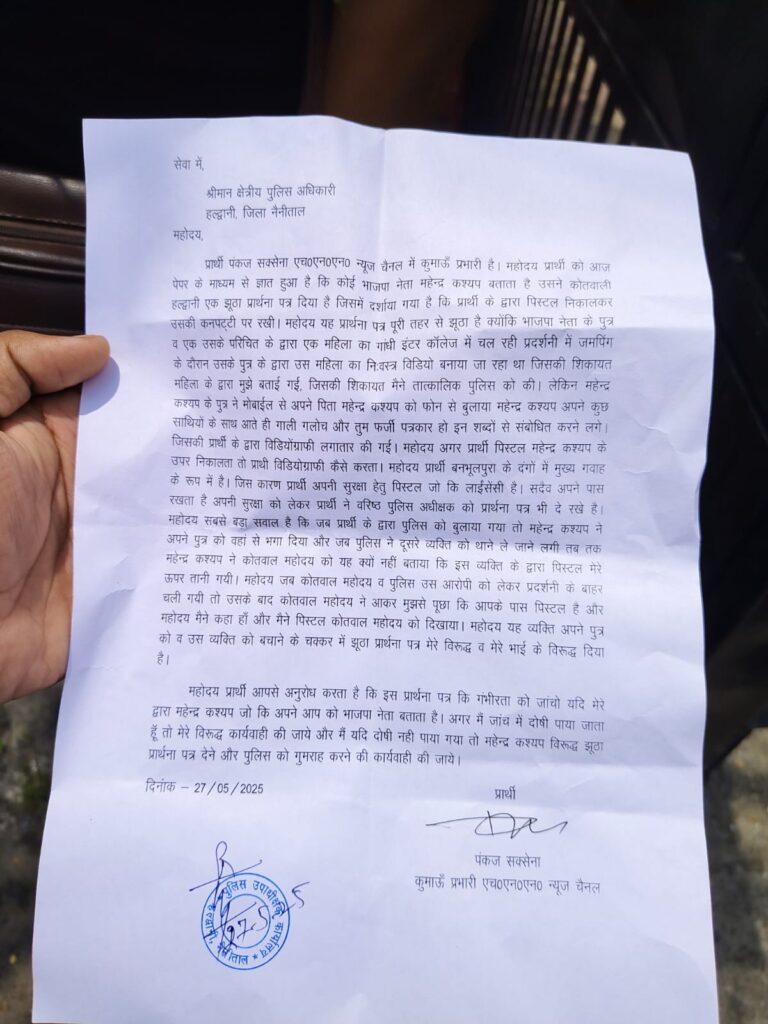 सेवा में,
श्रीमान क्षेत्रीय पुलिस अधिकारी
हल्द्वानी, जिला नैनीताल
महोदय,
प्रार्थी पंकज सक्सेना एच0एन0एन0 न्यूज चैनल में कुमाऊँ प्रभारी है। महोदय प्रार्थी को आज
पेपर के माध्यम से ज्ञात हुआ है कि कोई भाजपा नेता महेन्द्र कश्यप बताता है उसने कोतवाली
हल्द्वानी एक झूठा प्रार्थना पत्र दिया है जिसमें दर्शाया गया है कि प्रार्थी के द्वारा पिस्टल निकालकर
उसकी कनपट्टी पर रखी। महोदय यह प्रार्थना पत्र पूरी तहर से झूठा है क्योंकि भाजपा नेता के पुत्र
व एक उसके परिचित के द्वारा एक महिला का गांधी इंटर कॉलेज में चल रही प्रदर्शनी में जमपिंग
के दौरान उसके पुत्र के द्वारा उस महिला का नि:वस्त्र विडियो बनाया जा रहा था जिसकी शिकायत
महिला के द्वारा मुझे बताई गई, जिसकी शिकायत मैने तात्कालिक पुलिस को की। लेकिन महेन्द्र
कश्यप के पुत्र ने मोबाईल से अपने पिता महेन्द्र कश्यप को फोन से बुलाया महेन्द्र कश्यप अपने कुछ
साथियों के साथ आते ही गाली गलोच और तुम फर्जी पत्रकार हो इन शब्दों से संबोधित करने लगे।
जिसकी प्रार्थी के द्वारा विडियोंग्राफी लगातार की गई। महोदय अगर प्रार्थी पिस्टल महेन्द्र कश्यप के
उपर निकालता तो प्राथी विडियोग्राफी कैसे करता। महोदय प्रार्थी बनभूलपुरा के दंगों में मुख्य गवाह
के रूप में है। जिस कारण प्रार्थी अपनी सुरक्षा हेतु पिस्टल जो कि लाईसेंसी है। सदैव अपने पास
रखता है अपनी सुरक्षा को लेकर प्रार्थी ने वरिष्ठ पुलिस अधीक्षक को प्रार्थना पत्र भी दे रखे है।
महोदय सबसे बड़ा सवाल है कि जब प्रार्थी के द्वारा पुलिस को बुलाया गया तो महेन्द्र कश्यप ने
अपने पुत्र को वहां से भगा दिया और जब पुलिस ने दूसरे व्यक्ति को थाने ले जाने लगी तब तक
महेन्द्र कश्यप ने कोतवाल महोदय को यह क्यों नहीं बताया कि इस व्यक्ति के द्वारा पिस्टल मेरे
ऊपर तानी गयी। महोदय जब कोतवाल महोदय व पुलिस उस आरोपी को लेकर प्रदर्शनी के बाहर
चली गयी तो उसके बाद कोतवाल महोदय ने आकर मुझसे पूछा कि आपके पास पिस्टल है और
महोदय मैने कहा हाँ और मैने पिस्टल कोतवाल महोदय को दिखाया। महोदय यह व्यक्ति अपने पुत्र
को व उस व्यक्ति को बचाने के चक्कर में झूठा प्रार्थना पत्र मेरे विरूद्ध व मेरे भाई के विरूद्ध दिया
है।
महोदय प्रार्थी आपसे अनुरोध करता है कि इस प्रार्थना पत्र कि गंभीरता को जांचो यदि मेरे
द्वारा महेन्द्र कश्यप जो कि अपने आप को भाजपा नेता बताता है। अगर मैं जांच में दोषी पाया जाता
हूँ तो मेरे विरूद्ध कार्यवाही की जाये और मैं यदि दोषी नही पाया गया तो महेन्द्र कश्यप विरूद्ध झूठा
प्रार्थना पत्र देने और पुलिस को गुमराह करने की कार्यवाही की जाये।
दिनांक – 27/05/2025
प्रार्थी
पंकज सक्सेना
कुमाऊँ प्रभारी एच0एन0एन0 न्यूज चैनल
पुलिस उपाधीक्षक कार्यालय